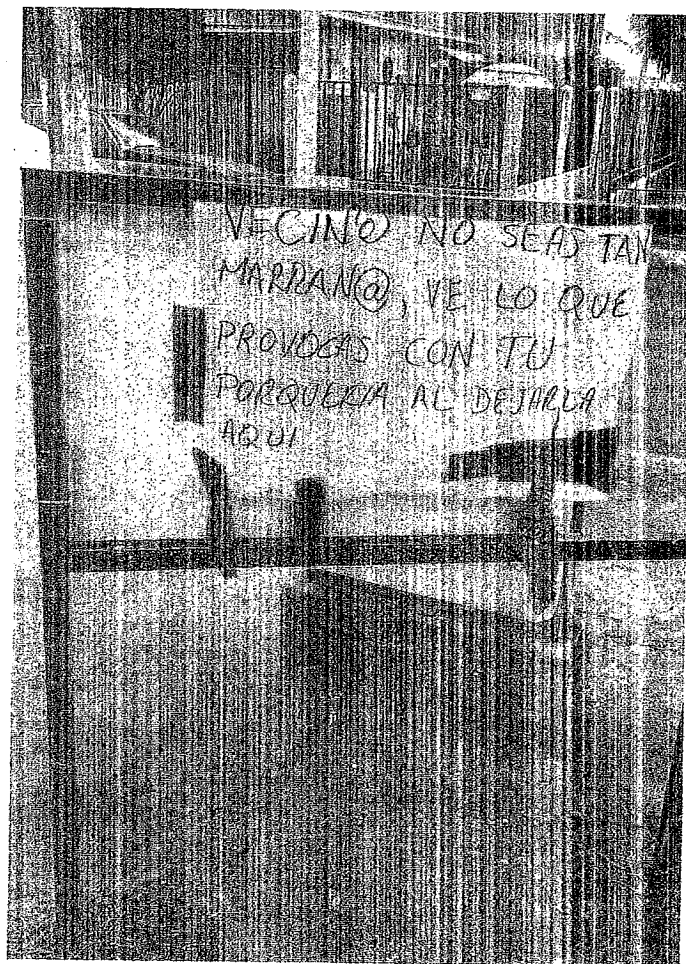 VECINO NO SEAS TAN
MARRAN@, VE LO QUE
PROVOCAS CON TU
PORQUERIA AL DEJARLA
AQUI